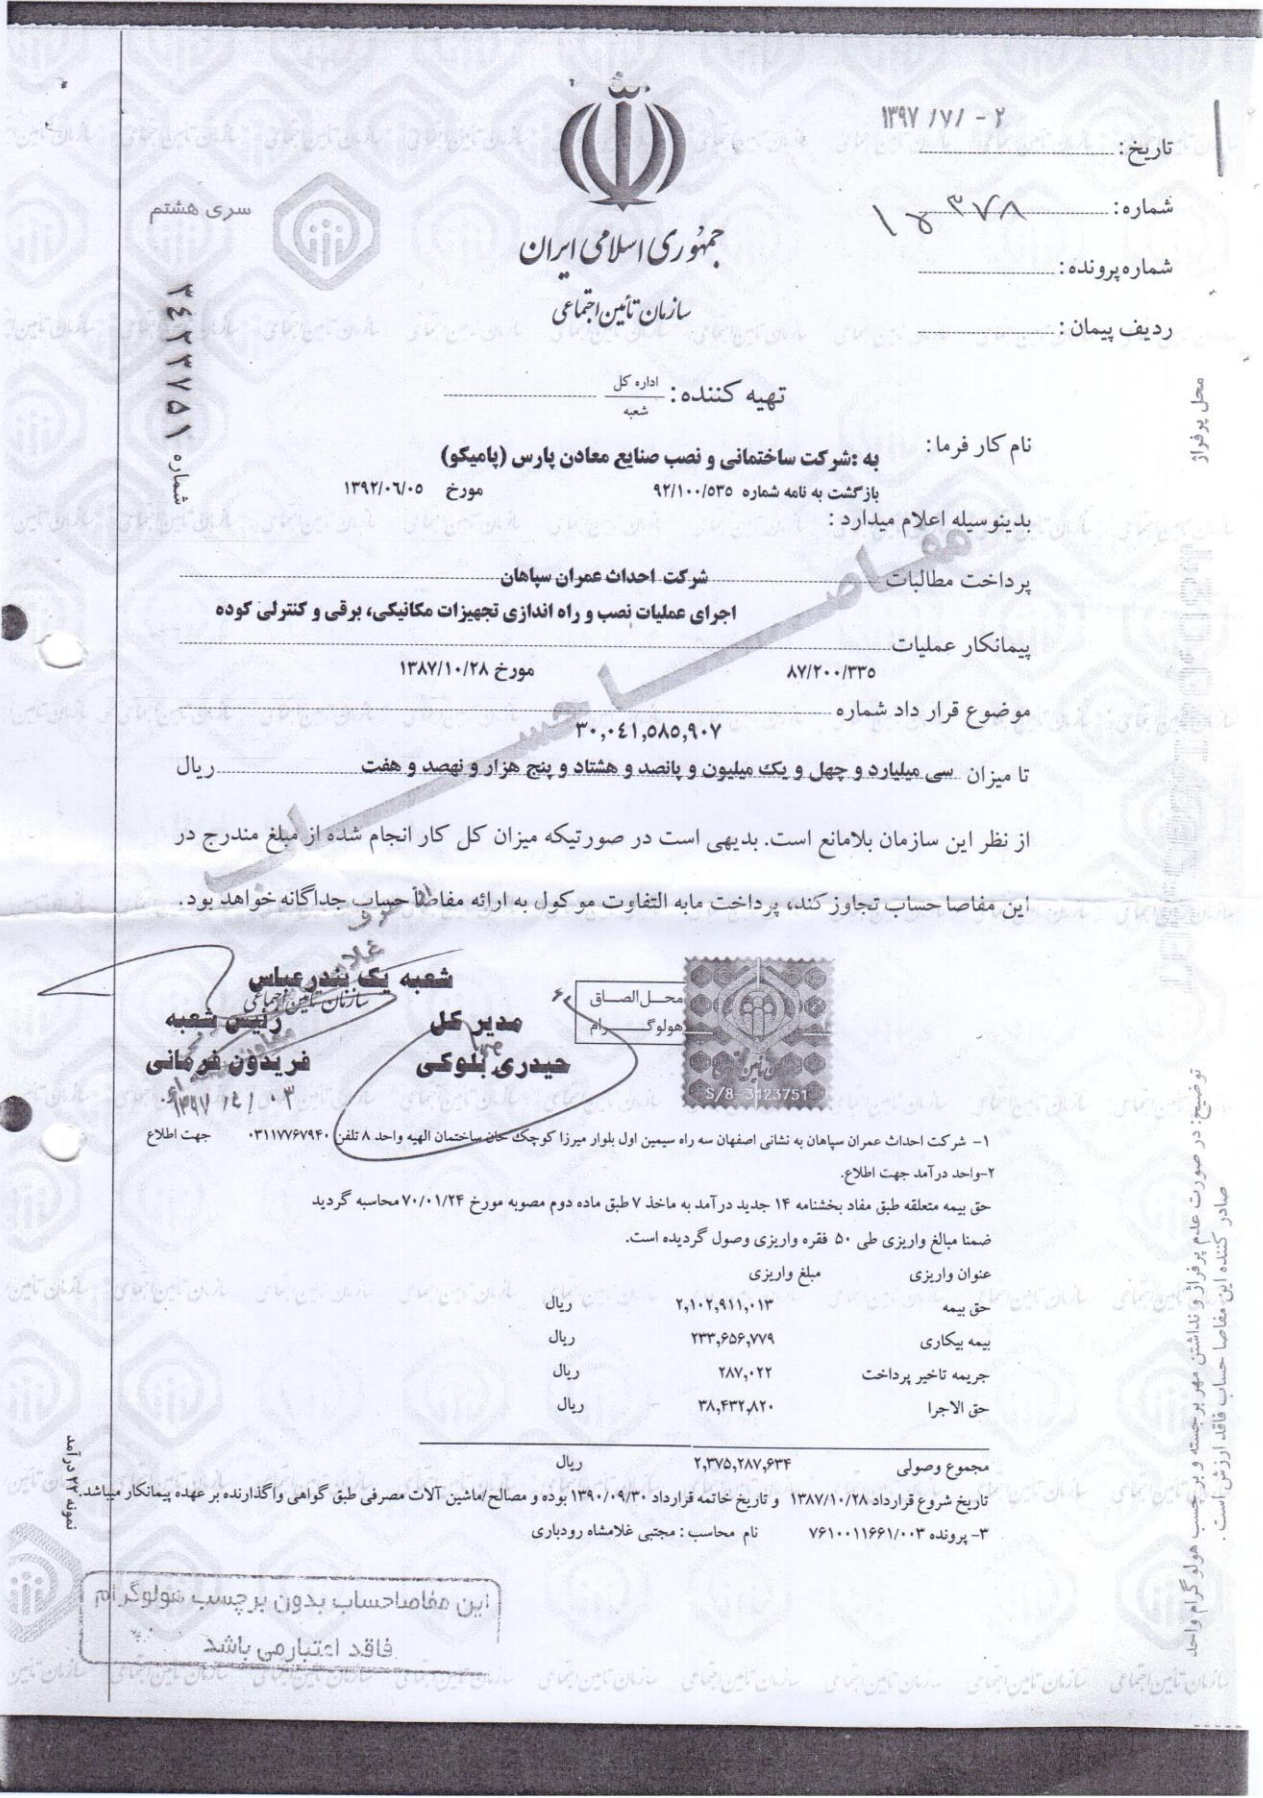 ۱۳۹۷/۷/-۲
تاریخ :
شماره :
شماره پرونده :
ردیف پیمان :
جمهوری اسلامی ایران
سازمان تأمین اجتماعی
سری هشتم
شماره ۳۴۲۳۷۵۱
تهیه کننده : اداره کل
شعبه
نام کار فرما :
به :شرکت ساختمانی و نصب صنایع معادن پارس (پامیکو)
بازگشت به نامه شماره ۹۲/۱۰۰/۵۳۵ مورخ ۱۳۹۲/۰۶/۰۵
بدینوسیله اعلام میدارد :
پرداخت مطالبات شرکت احداث عمران سپاهان
اجرای عملیات نصب و راه اندازی تجهیزات مکانیکی، برقی و کنترلی کوده
پیمانکار عملیات
۸۷/۲۰۰/۳۳۵ مورخ ۱۳۸۷/۱۰/۲۸
موضوع قرار داد شماره
۳۰,۰۴۱,۵۸۵,۹۰۷
تا میزان سی میلیارد و چهل و یک میلیون و پانصد و هشتاد و پنج هزار و نهصد و هفت ریال
از نظر این سازمان بلامانع است. بدیهی است در صورتیکه میزان کل کار انجام شده از مبلغ مندرج در
این مفاصا حساب تجاوز کند، پرداخت مابه التفاوت موکول به ارائه مفاصا حساب جداگانه خواهد بود.
مفاصا حساب
محل الصاق
هولوگرام
S/8-3423751
شعبه یک بندرعباس
سازمان تأمین اجتماعی
مدیر کل
حیدری بلوکی
رئیس شعبه
فریدون فرمانی
۱۳۹۷/۴/۰۳
۱- شرکت احداث عمران سپاهان به نشانی اصفهان سه راه سیمین اول بلوار میرزا کوچک خان ساختمان الهیه واحد ۸ تلفن ۰۳۱۱۷۷۶۷۹۴۰ جهت اطلاع
۲-واحد درآمد جهت اطلاع.
حق بیمه متعلقه طبق مفاد بخشنامه ۱۴ جدید درآمد به ماخذ ۷ طبق ماده دوم مصوبه مورخ ۷۰/۰۱/۲۴ محاسبه گردید
ضمنا مبالغ واریزی طی ۵۰ فقره واریزی وصول گردیده است.
عنوان واریزی مبلغ واریزی
حق بیمه ۲,۱۰۲,۹۱۱,۰۱۳ ریال
بیمه بیکاری ۲۳۳,۶۵۶,۷۷۹ ریال
جریمه تاخیر پرداخت ۲۸۷,۰۲۲ ریال
حق الاجرا ۳۸,۴۳۲,۸۲۰ ریال
مجموع وصولی ۲,۳۷۵,۲۸۷,۶۳۴ ریال
تاریخ شروع قرارداد ۱۳۸۷/۱۰/۲۸ و تاریخ خاتمه قرارداد ۱۳۹۰/۰۹/۳۰ بوده و مصالح/ماشین آلات مصرفی طبق گواهی واگذارنده بر عهده پیمانکار میباشد.
۳- پرونده ۷۶۱۰۰۱۱۶۶۱/۰۰۳ نام محاسب : مجتبی غلامشاه رودباری
این مفاصاحساب بدون برچسب هولوگرام
فاقد اعتبار می باشد
نمونه ۲۲ درآمد
محل پرفراژ
توضیح: در صورت عدم پرفراژ و نداشتن مهر برجسته و برچسب هولوگرام واحد
صادر کننده این مفاصا حساب فاقد ارزش است .